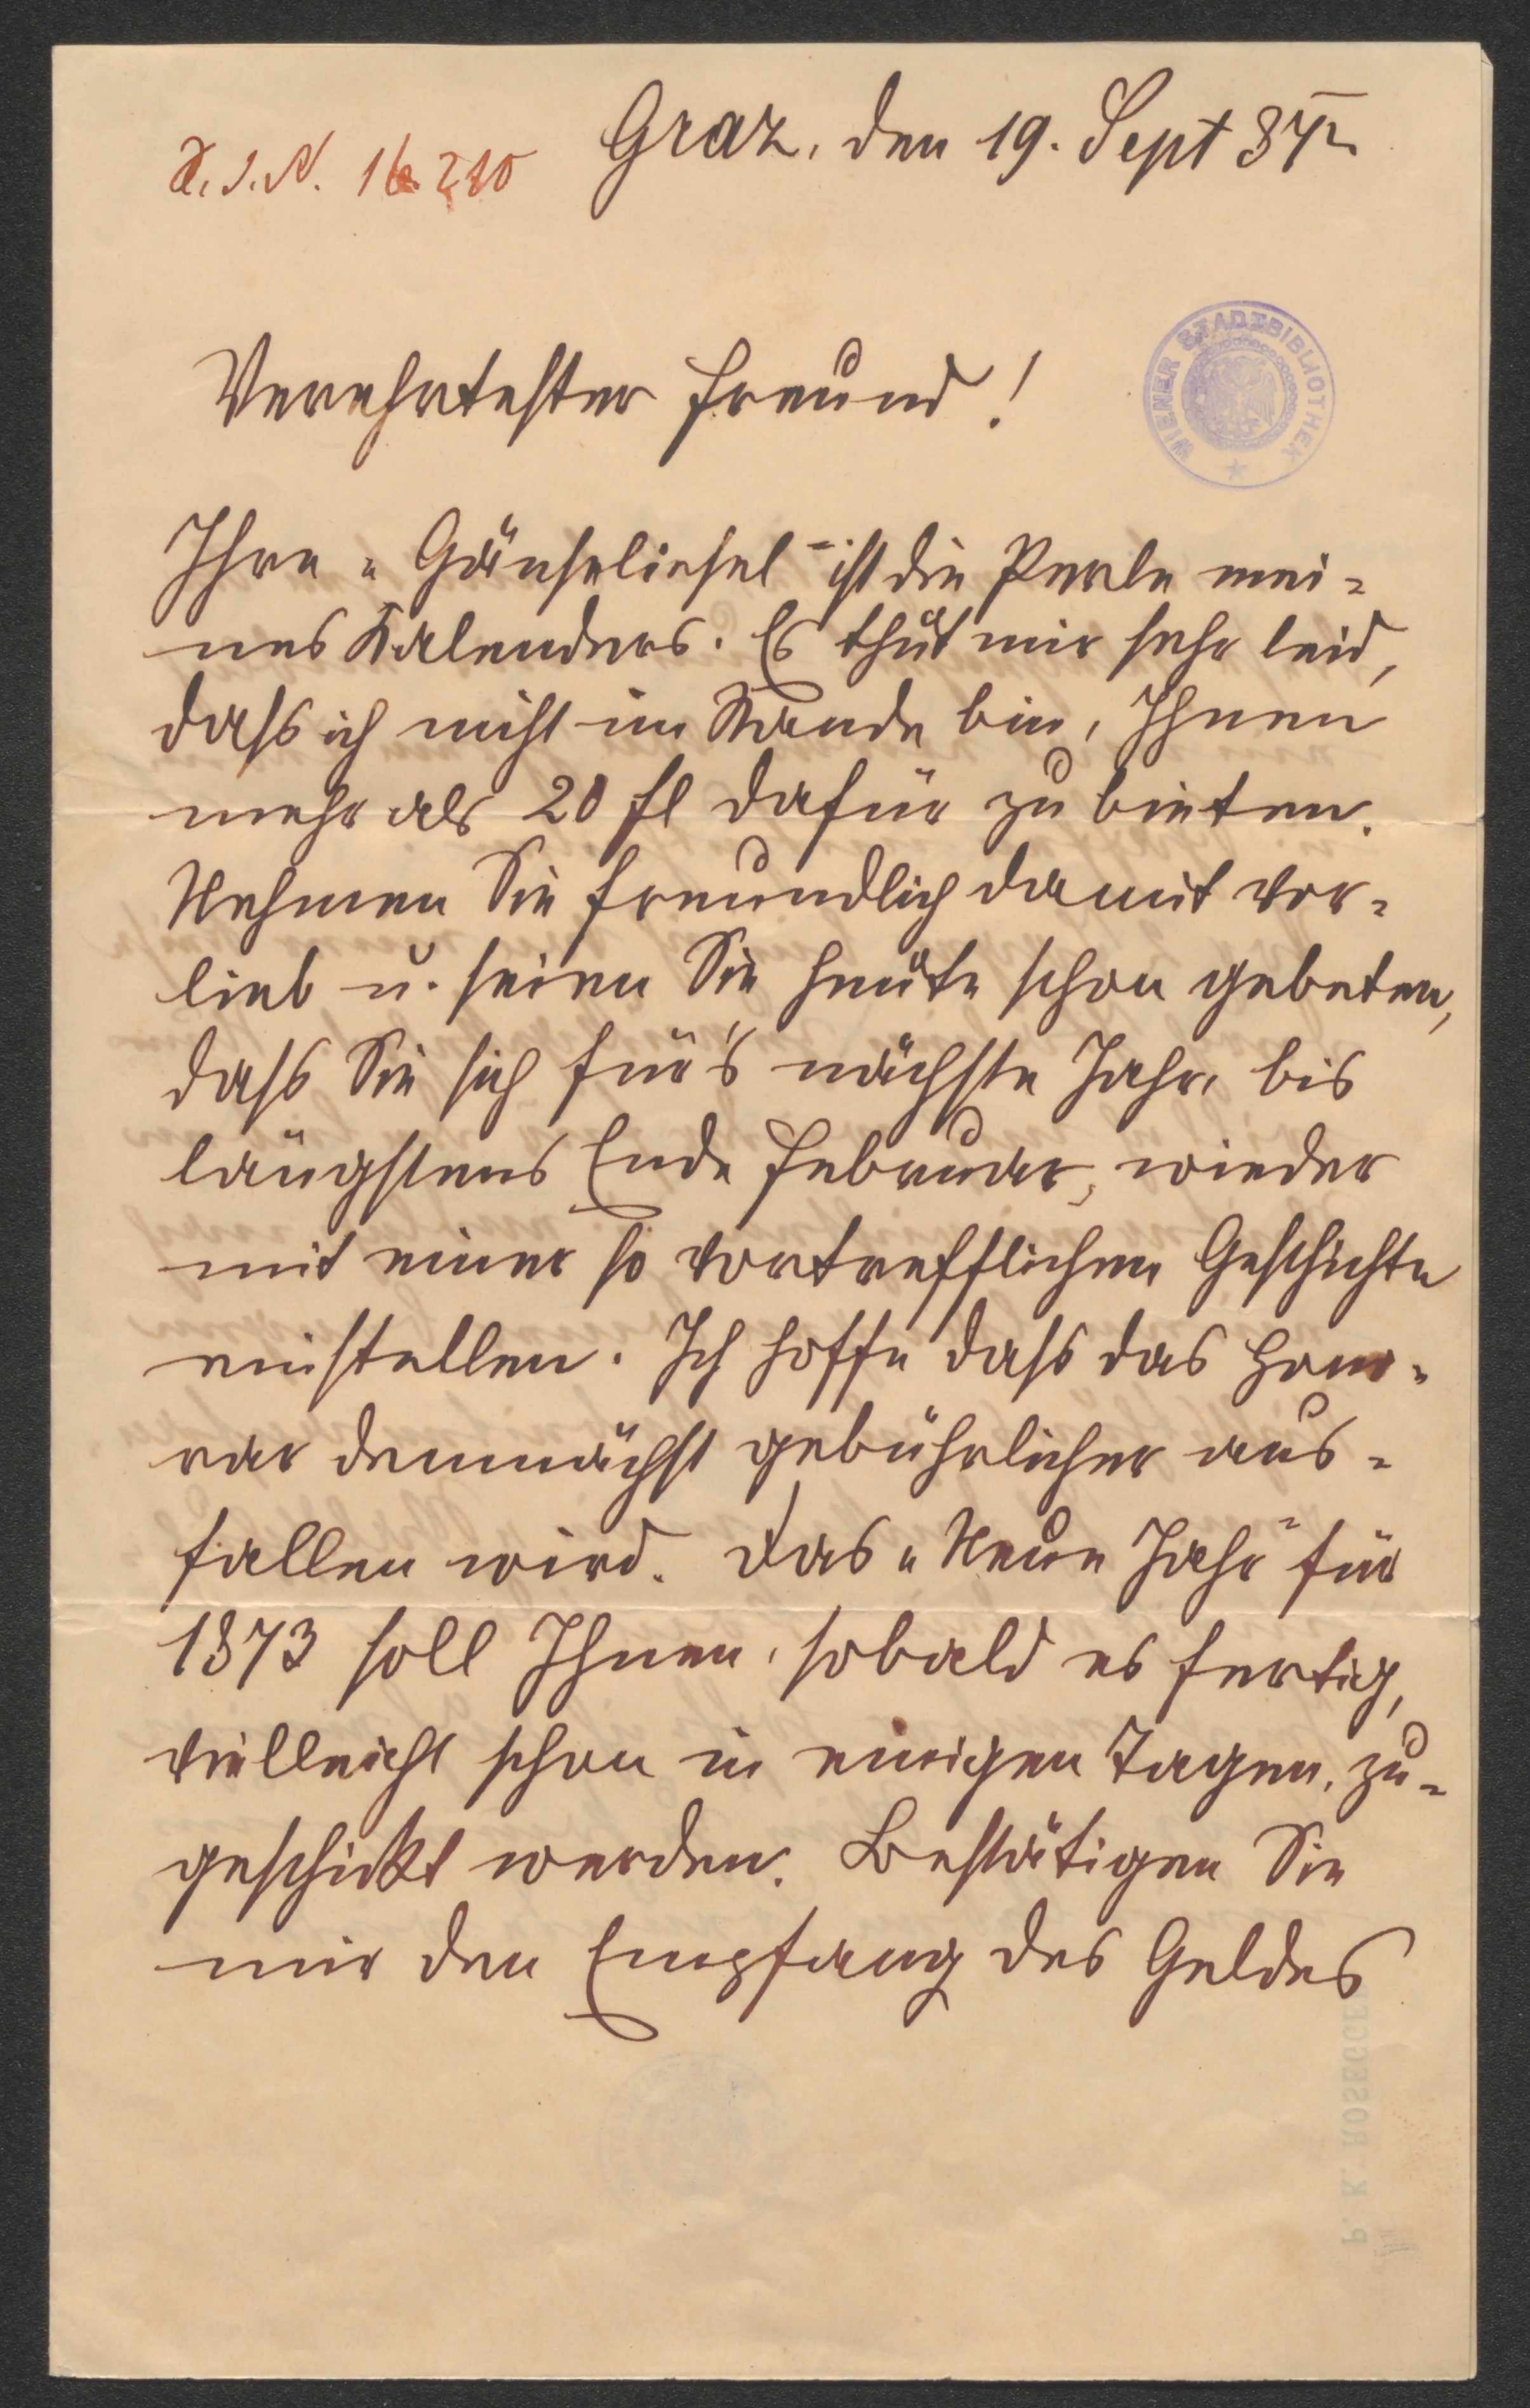 Graz, den 19. Sept 872
J. N. 16.210
WIENER STADTBIBLIOTHEK
Verehrtester Freund!
Ihre „Gänseliesel" ist die Perle mei-
nes Kalenders. Es thut mir sehr leid,
dass ich nicht im Stande bin, Ihnen
mehr als 20 fl dafür zu bieten.
Nehmen Sie freundlich damit vor-
lieb u. seien Sie heute schon gebeten,
dass Sie sich für's nächste Jahr, bis
längstens Ende Februar, wieder
mit einer so vortrefflichen Geschichte
einstellen. Ich hoffe dass das Hono-
rar demnächst gebührlicher aus-
fallen wird. Das „Neue Jahr" für
1873 soll Ihnen, sobald es fertig,
vielleicht schon in einigen Tagen, zu-
geschickt werden. Bestätigen Sie
mir den Empfang des Geldes